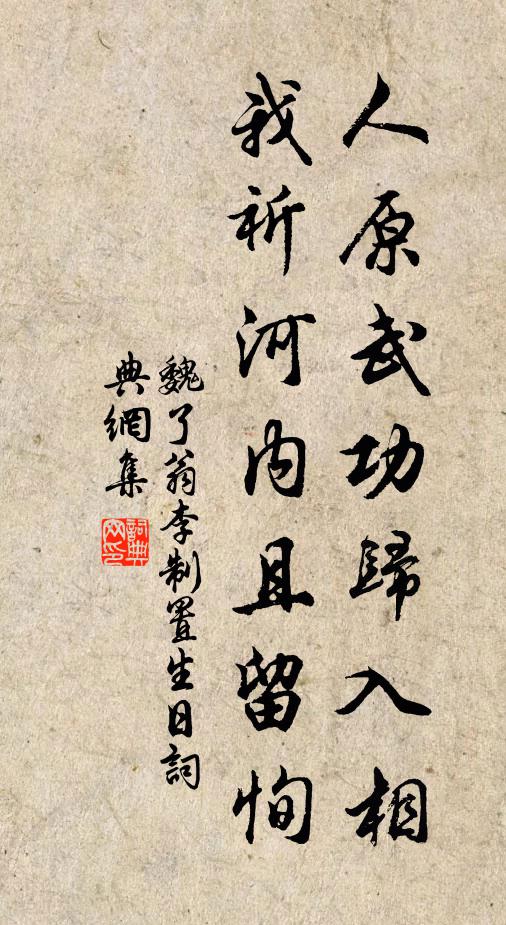 人原武功歸入相
我祈河內且留恂
魏了翁李制置生日詞
典網集
詞典
网印